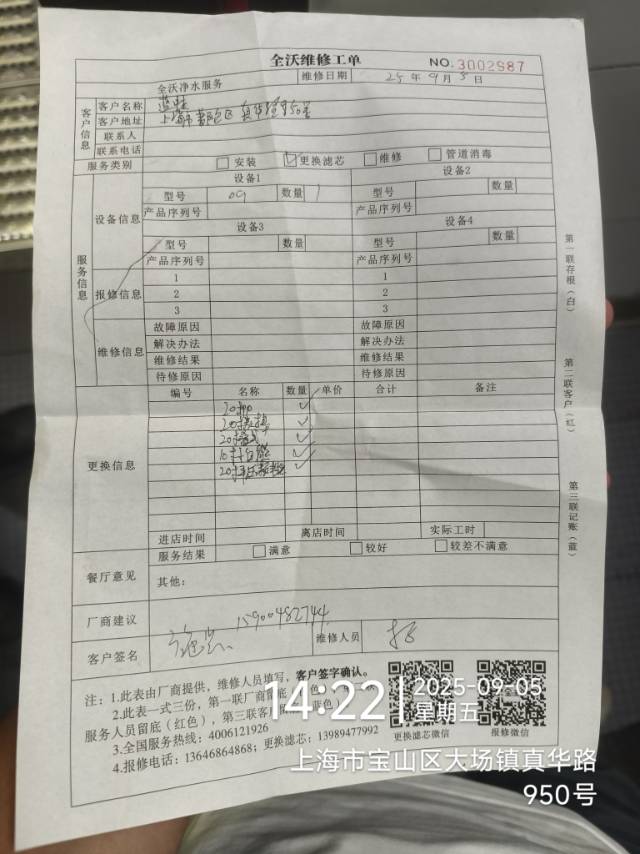 全沃维修工单
NO.3002987
全沃净水服务 维修日期 25年9月5日
客户信息
客户名称
客户地址 上海市 区 真华路950号
联系人
联系电话
服务类别 安装 更换滤芯 维修 管道消毒
服务信息
设备信息
设备1 设备2
型号 09 数量 1 型号 数量
产品序列号 产品序列号
设备3 设备4
型号 数量 型号 数量
产品序列号 产品序列号
报修信息
1 1
2 2
3 3
维修信息
故障原因 故障原因
解决办法 解决办法
维修结果 维修结果
待修原因 待修原因
更换信息
编号 名称 数量 单价 合计 备注
20寸
20寸
20寸
10寸
20寸
进店时间 离店时间 实际工时
餐厅意见
服务结果 满意 较好 较差不满意
其他：
厂商建议
15900482744
客户签名 维修人员
第一联存根（白）
第二联客户（红）
第三联记账（蓝）
注：1.此表由厂商提供，维修人员填写，客户签字确认。
2.此表一式三份，第一联厂商留底
服务人员留底（红色），第三联客
3.全国服务热线：4006121926
4.报修电话：13646864868；更换滤芯：13989477992
更换滤芯微信 报修微信
14:22
2025-09-05
星期五
上海市宝山区大场镇真华路
950号